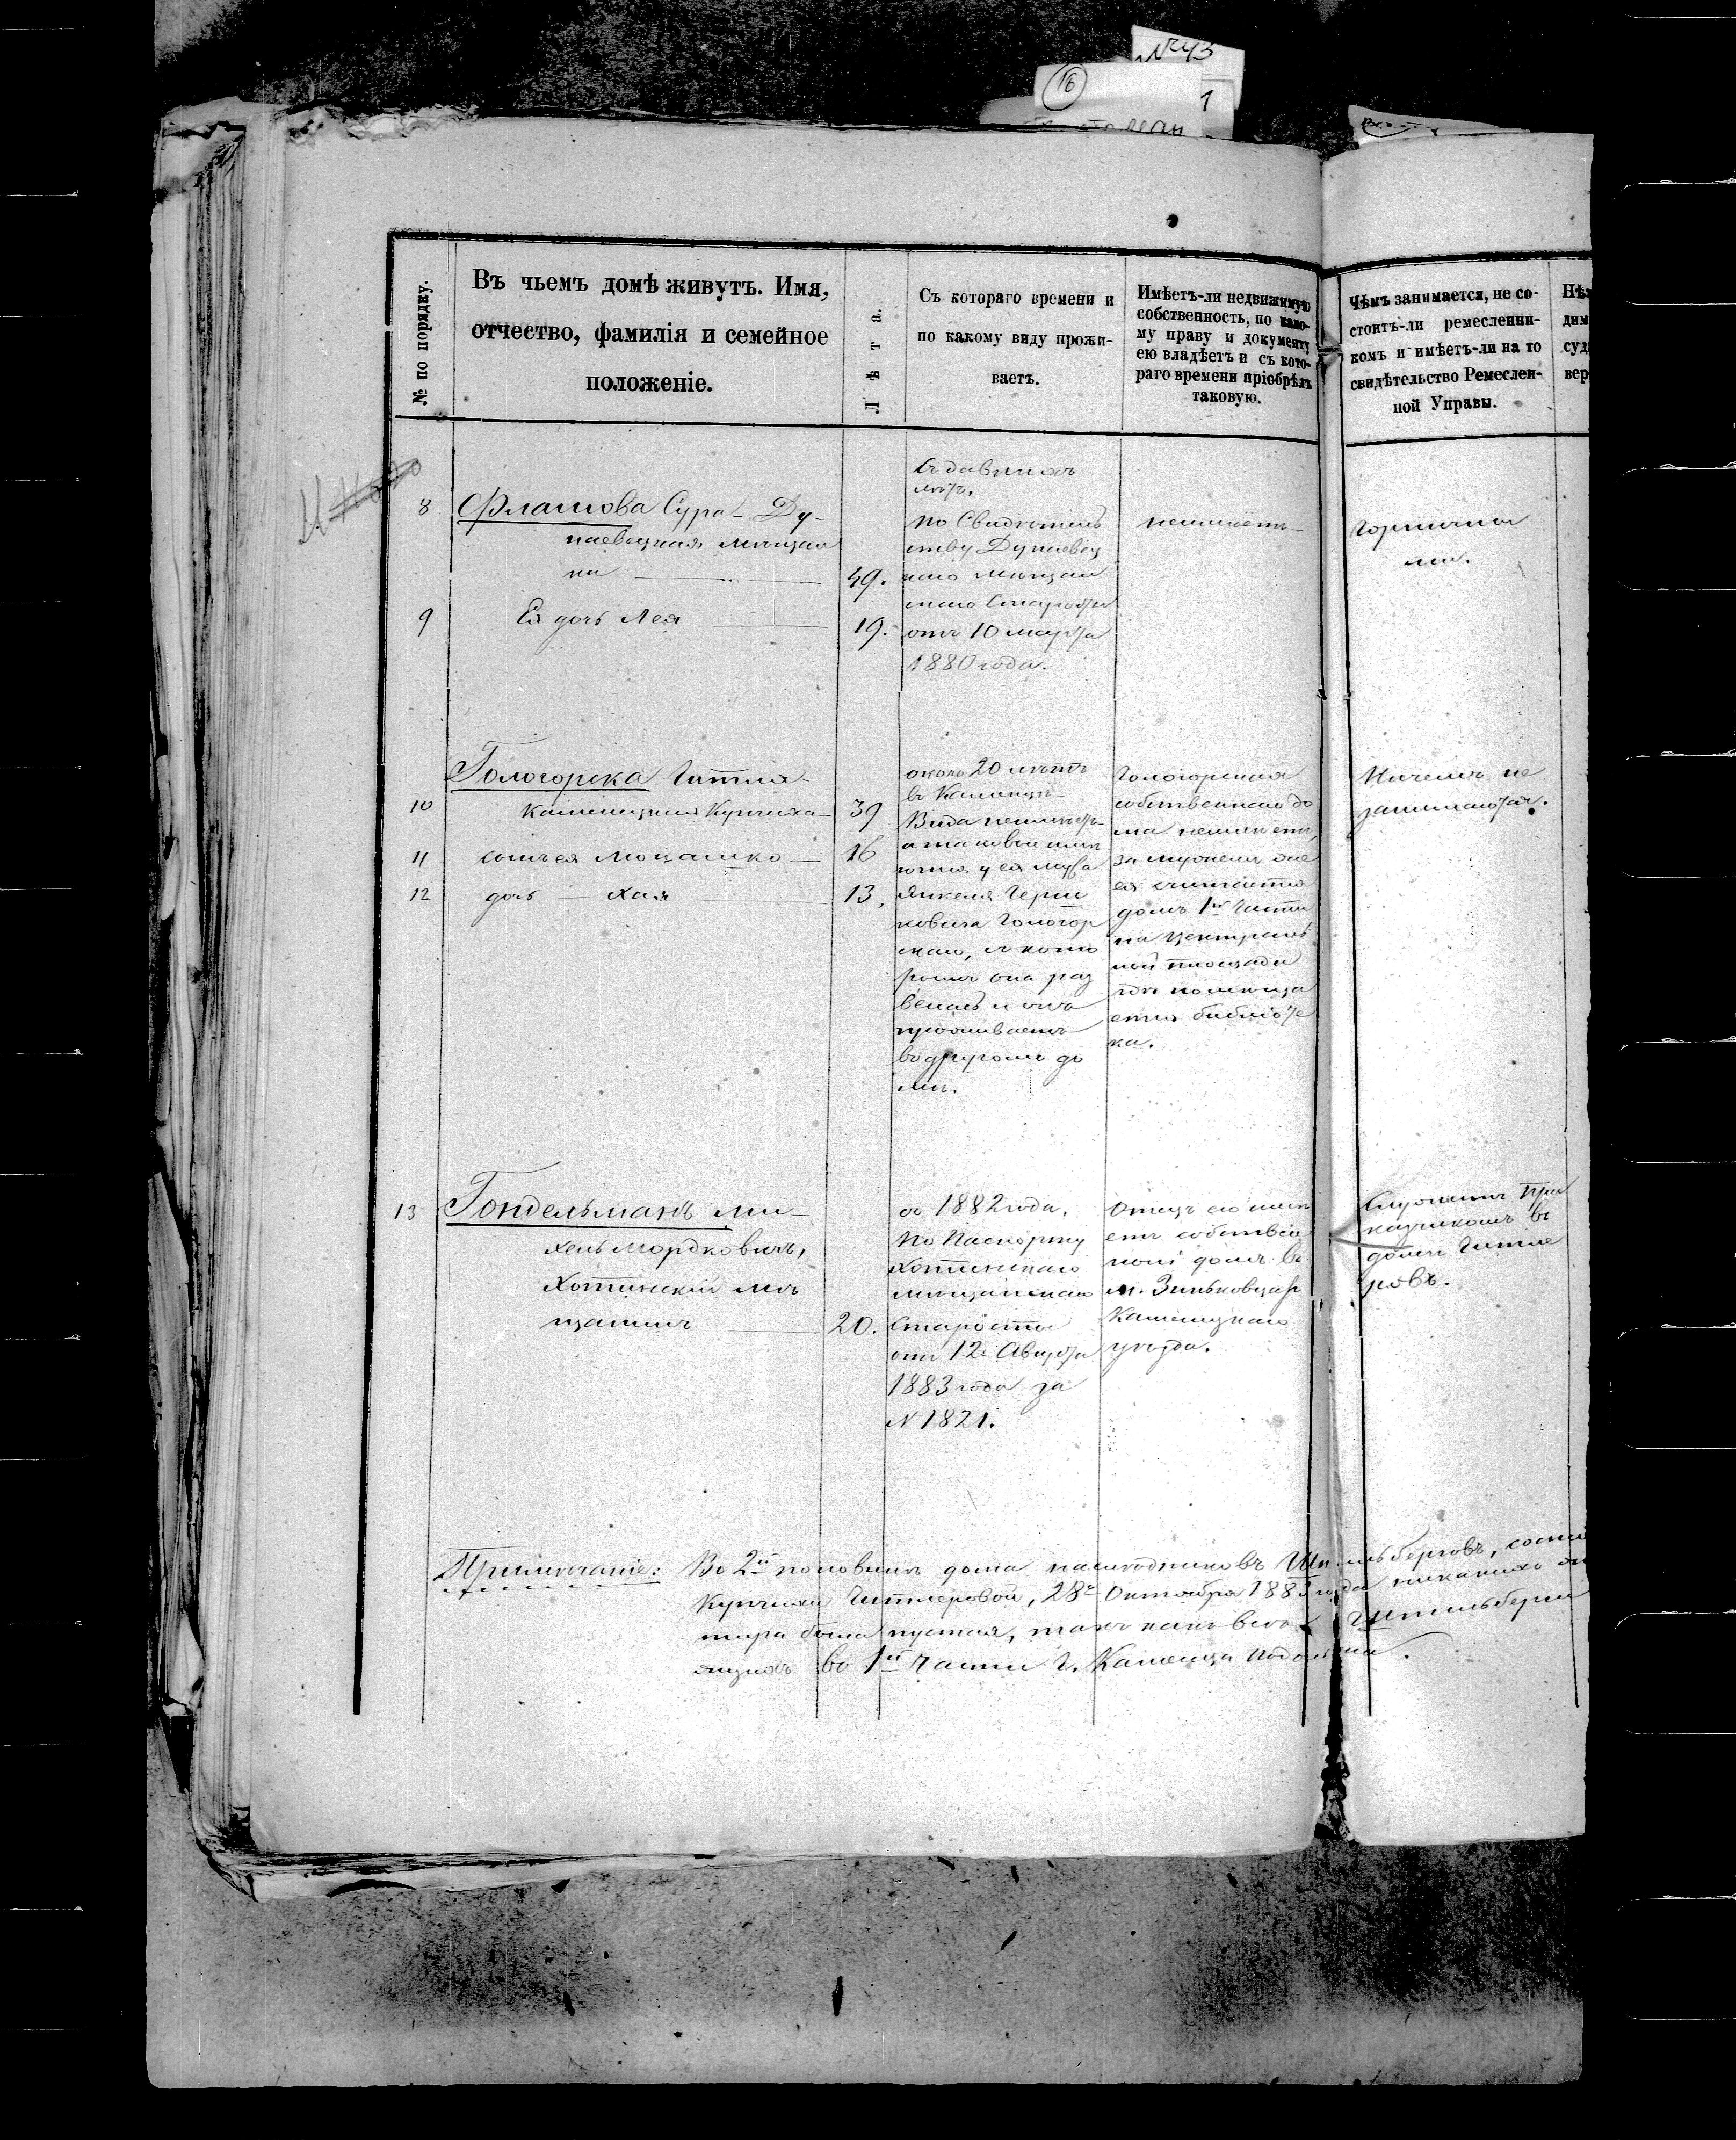 №43
16
1
№ по порядку.
Въ чьемъ домѣ живутъ. Имя,
отчество, фамилія и семейное
положеніе.
Лѣта.
Съ котораго времени и
по какому виду прожи-
ваетъ.
Имѣетъ-ли недвижимую
собственность, по како-
му праву и документу
ею владѣетъ и съ кото-
раго времени пріобрѣлъ
таковую.
Чѣмъ занимается, не со-
стоитъ-ли ремесленни-
комъ и имѣетъ-ли на то
свидѣтельство Ремеслен-
ной Управы.
8
Флашова Сура - Ду-
наевецкая мѣщан
ка
49.
9
Ея дочь Лея
19.
Съ давнихъ
лѣтъ.
по Свидѣтель
ству Дунаевец
каго мѣщан
скаго Старосты
отъ 10 марта
1880 года.
неимѣетъ
Горнична
ми.
Гологорска Гитля
10
Каменецкая Купчиха
39
11
сынъ ея Мошко
16
12
дочь Хая
13,
около 20 лѣтъ
въ Каменцѣ
Вида неимѣетъ
а таковой имѣ
ется у ея мужа
Янкеля Герш
ковича Гологор
скаго, съ кото
рымъ она раз
велась и онъ
проживаетъ
въ другомъ до
мѣ.
Гологорская
собственнаго до
ма неимѣетъ,
за мужемъ же
ея считается
домъ 1й Части
на Централь
ной площади
гдѣ помѣща
ется библіоте
ка.
Ничемъ не
занимаются.
13
Гондельманъ Ми-
хель Мордковичъ,
Хотинскій мѣ
щанинъ
20.
съ 1882 года.
По Паспорту
Хотинскаго
мѣщанскаго
Старосты
отъ 12 Августа
1883 года за
№ 1821.
Отецъ его имѣ
етъ собствен
ной домъ въ
м. Зиньковцах
Каменецкаго
уѣзда.
Служитъ При
казчикомъ въ
домѣ Гитле
ровъ.
Примѣчаніе: Во 2й половинѣ дома наслѣдниковъ
Купчихи Гитлеровой, 28 Октября 1883 года никакихъ
тира была пустая, такъ какъ
во 1й части г. Каменца Подольска.